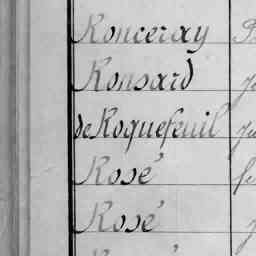 Ronceray
Ronsard
de Roquefeuil
Rosé
Rosé